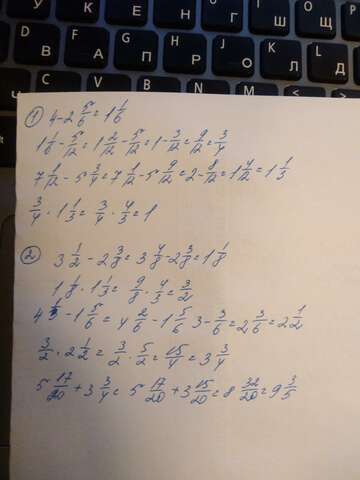 О Л Д Ш Щ
D В F А G П H Р
C V М B
① 4-2 5/6=1 1/6
1 1/6-5/12=1 2/12-5/12=1-3/12=9/12=3/4
7 1/12-5 3/4=7 1/12-5 9/12=2-8/12=1 4/12=1 1/3
3/4·1 1/3=3/4·4/3=1
② 3 1/2-2 3/8=3 4/8-2 3/8=1 1/8
1 1/8·1 1/3=9/8·4/3=3/2
4 1/3-1 5/6=4 2/6-1 5/6 3-3/6=2 3/6=2 1/2
3/2·2 1/2=3/2·5/2=15/4=3 3/4
5 17/20+3 3/4=5 17/20+3 15/20=8 32/20=9 3/5